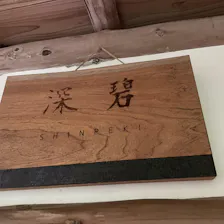 深碧
SHINPEKI